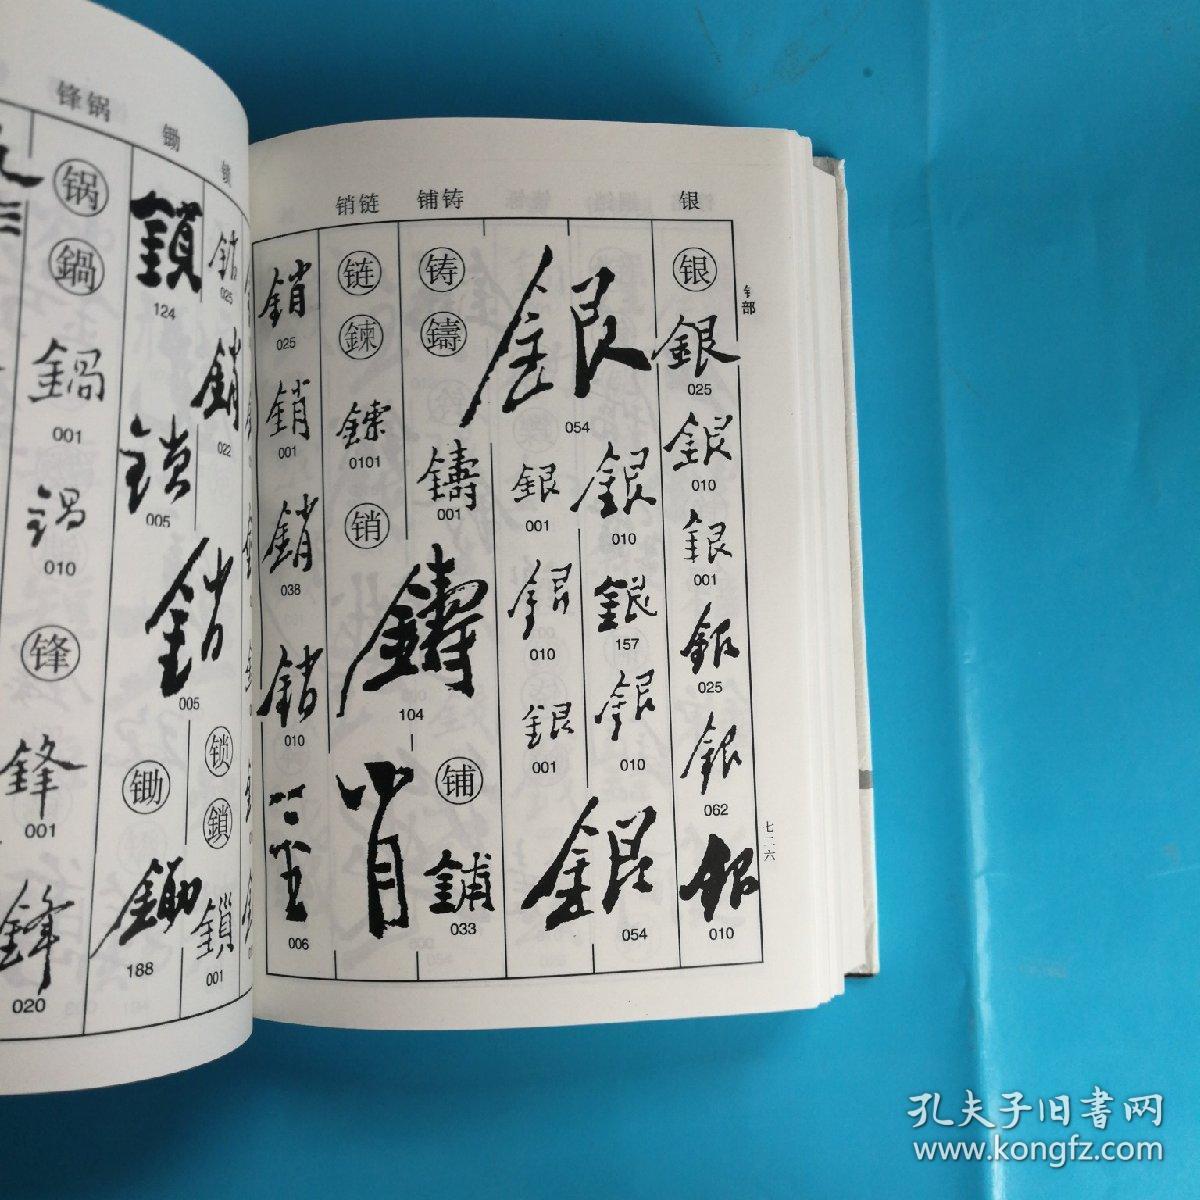 銷链 铺铸 银
钅部
银
銀
025
銀
010
銀
001
銀
025
銀
062
銀
010
七二六
銀
054
銀
010
銀
157
銀
010
銀
054
銀
001
銀
010
銀
001
铸
鑄
鑄
001
鑄
104
铺
鋪
033
链
鍊
鍊
0101
销
銷
025
銷
001
銷
038
銷
010
銷
006
锋锅
锄
锁
025
022
鎖
124
鎖
005
005
锁
鎖
鎖
001
锄
鋤
188
锅
鍋
鍋
001
鍋
010
锋
鋒
001
鋒
020
孔夫子旧书网
www.kongfz.com